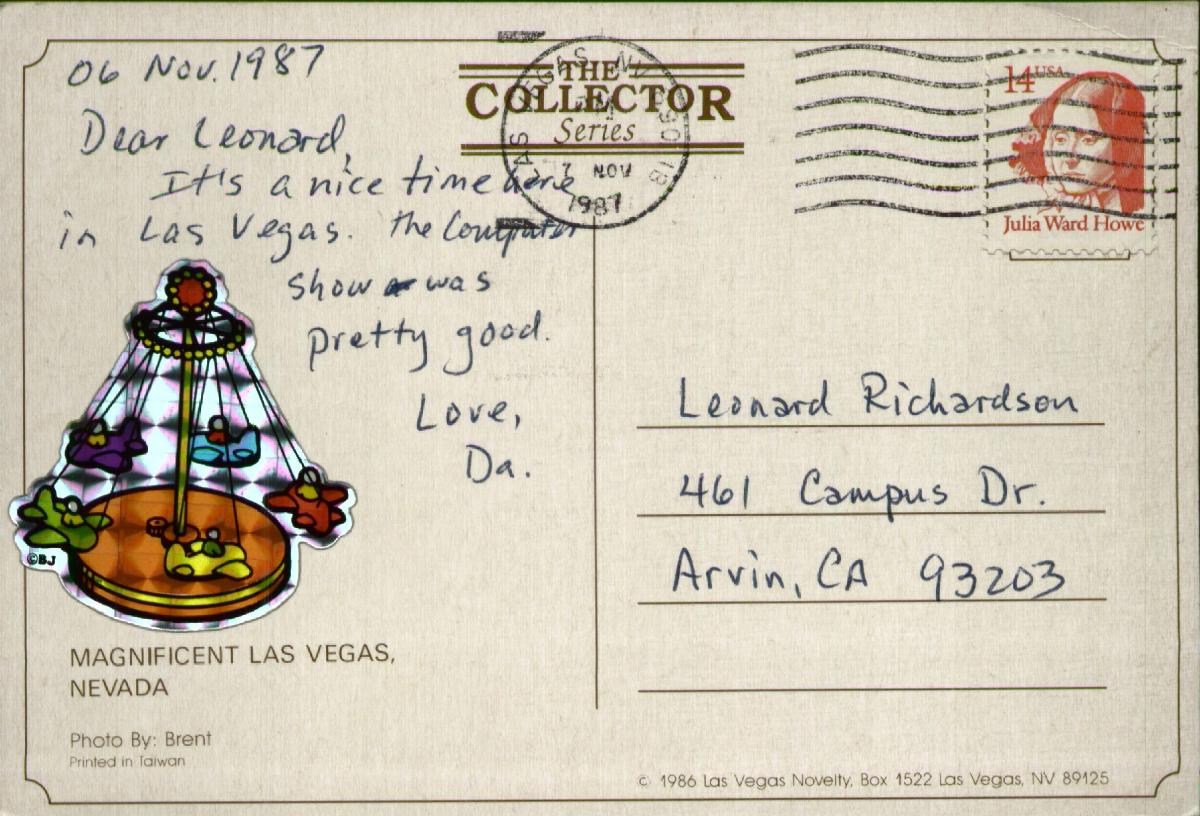 06 Nov. 1987
Dear Leonard,
It's a nice time here
in Las Vegas. the Computer
show was
pretty good.
Love,
Da.
©BJ
MAGNIFICENT LAS VEGAS,
NEVADA
Photo By: Brent
Printed in Taiwan
THE
COLLECTOR
Series
LAS VEGAS NV
7 NOV
1987
14 USA
Julia Ward Howe
Leonard Richardson
461 Campus Dr.
Arvin, CA 93203
© 1986 Las Vegas Novelty, Box 1522 Las Vegas, NV 89125